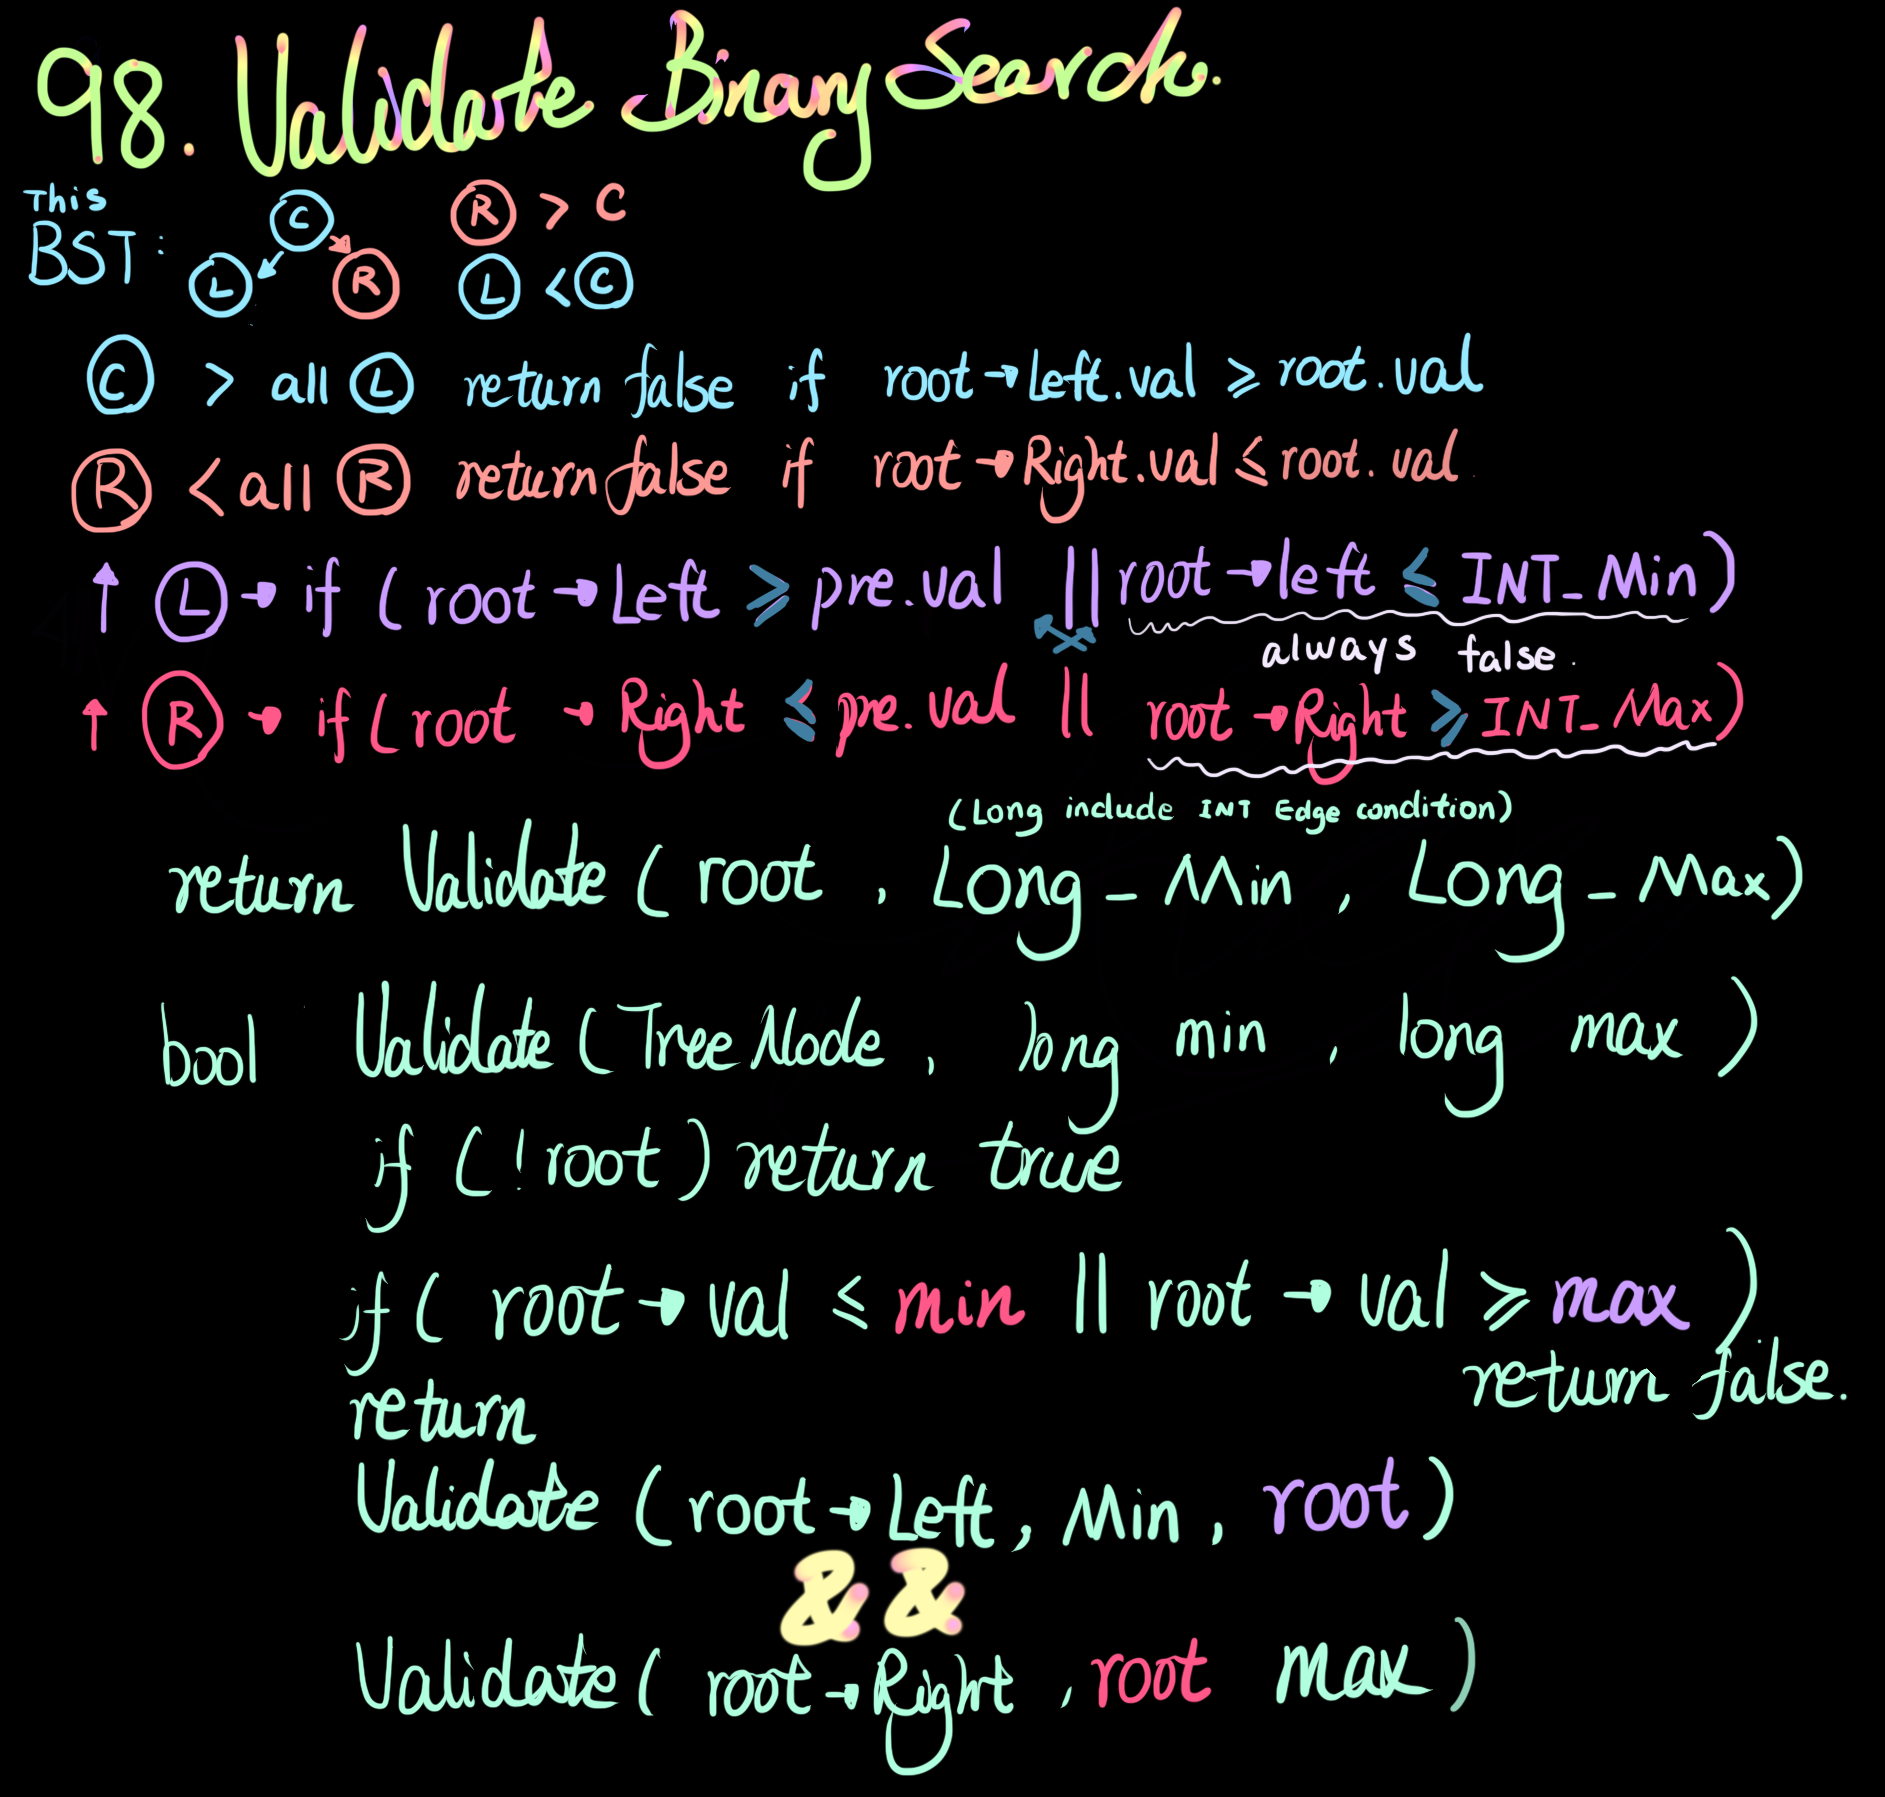 98. Validate Binary Search.
This
BST:
C
L
R
R > C
L < C
C > all L return false if root→Left.val ≥ root.val
R < all R return false if root→Right.val ≤ root.val
↑ L → if (root→Left ≥ pre.val || root→left ≤ INT_Min)
always false.
↑ R → if (root → Right ≤ pre.val || root→Right ≥ INT_Max)
(Long include INT Edge condition)
return Validate (root, Long_Min, Long_Max)
bool Validate (TreeNode, long min, long max)
if (!root) return true
if (root→val ≤ min || root→val ≥ max)
return false.
return
Validate (root→Left, Min, root)
&&
Validate (root→Right, root max)